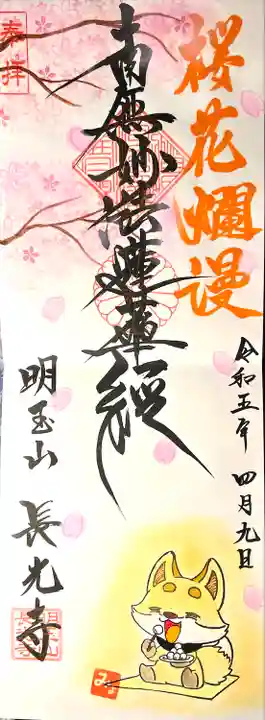 櫻花爛漫
令和五年 四月九日
南無妙法蓮華経
奉拝
明玉山 長光寺